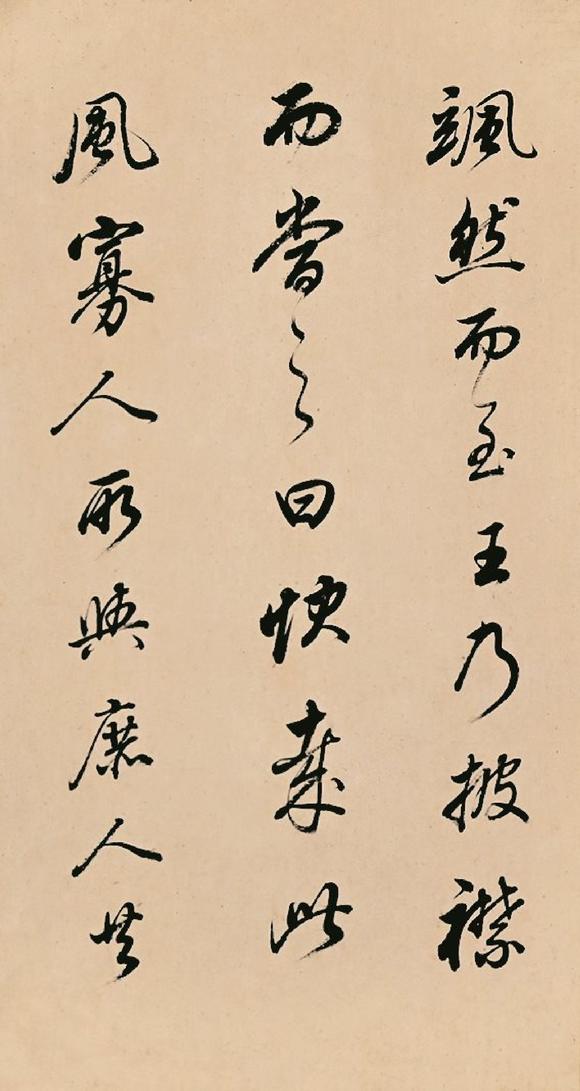 颯然而至王乃披襟
而當之曰快哉此
風寡人所與庶人共